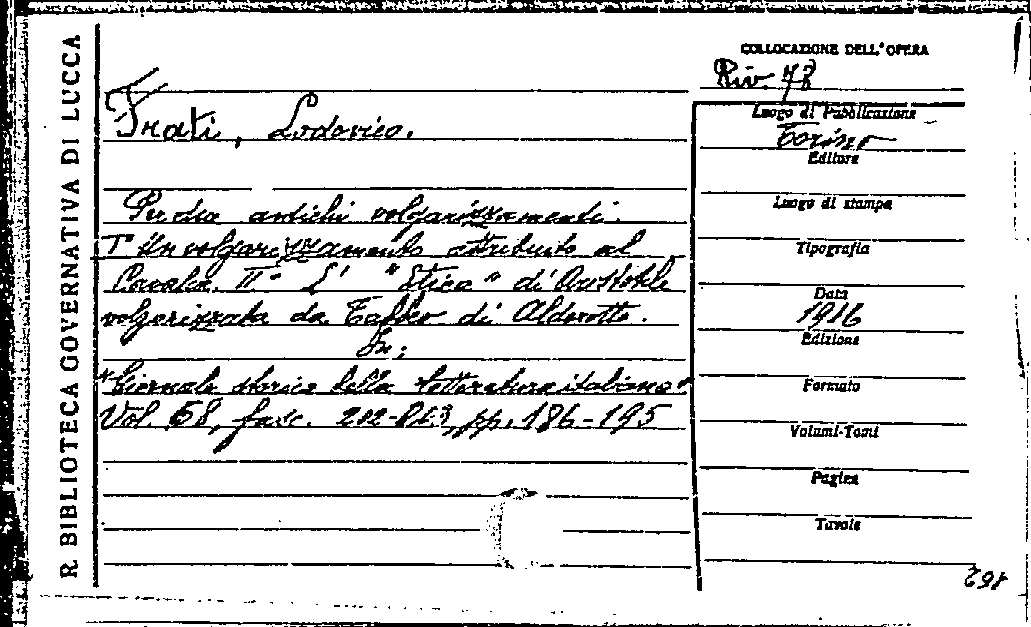 R. BIBLIOTECA GOVERNATIVA DI LUCCA
COLLOCAZIONE DELL'OPERA
Riv. 78
Frati, Lodovico.
Luogo di Pubblicazione
Torino
Editore
Luogo di stampa
Tipografia
Data
1916
Edizione
Formato
Volumi-Tomi
Pagine
Tavole
Per due antichi volgarizzamenti.
I° Un volgarizzamento attribuito al
Cavalca. II° L' "Etica" di Aristotele
volgarizzata da Taddeo di Alderotto.
In:
"Giornale storico della letteratura italiana"
Vol. 68, fasc. 202-203, pp. 186-195
162